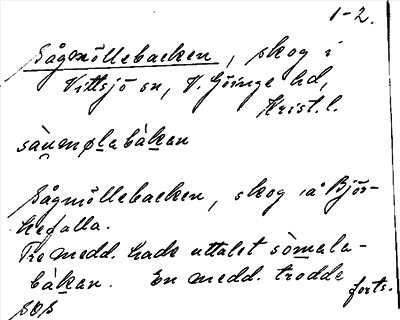 1-2.
Sågmöllebacken, skog i
Vittsjö sn, V. Göinge hd,
Krist. l.
sàu̯mølabàkan
Sågmöllebacken, skog å Björ-
kefalla.
Tre medd. hade uttalet sòmala-
bàkan. En medd. trodde
forts.